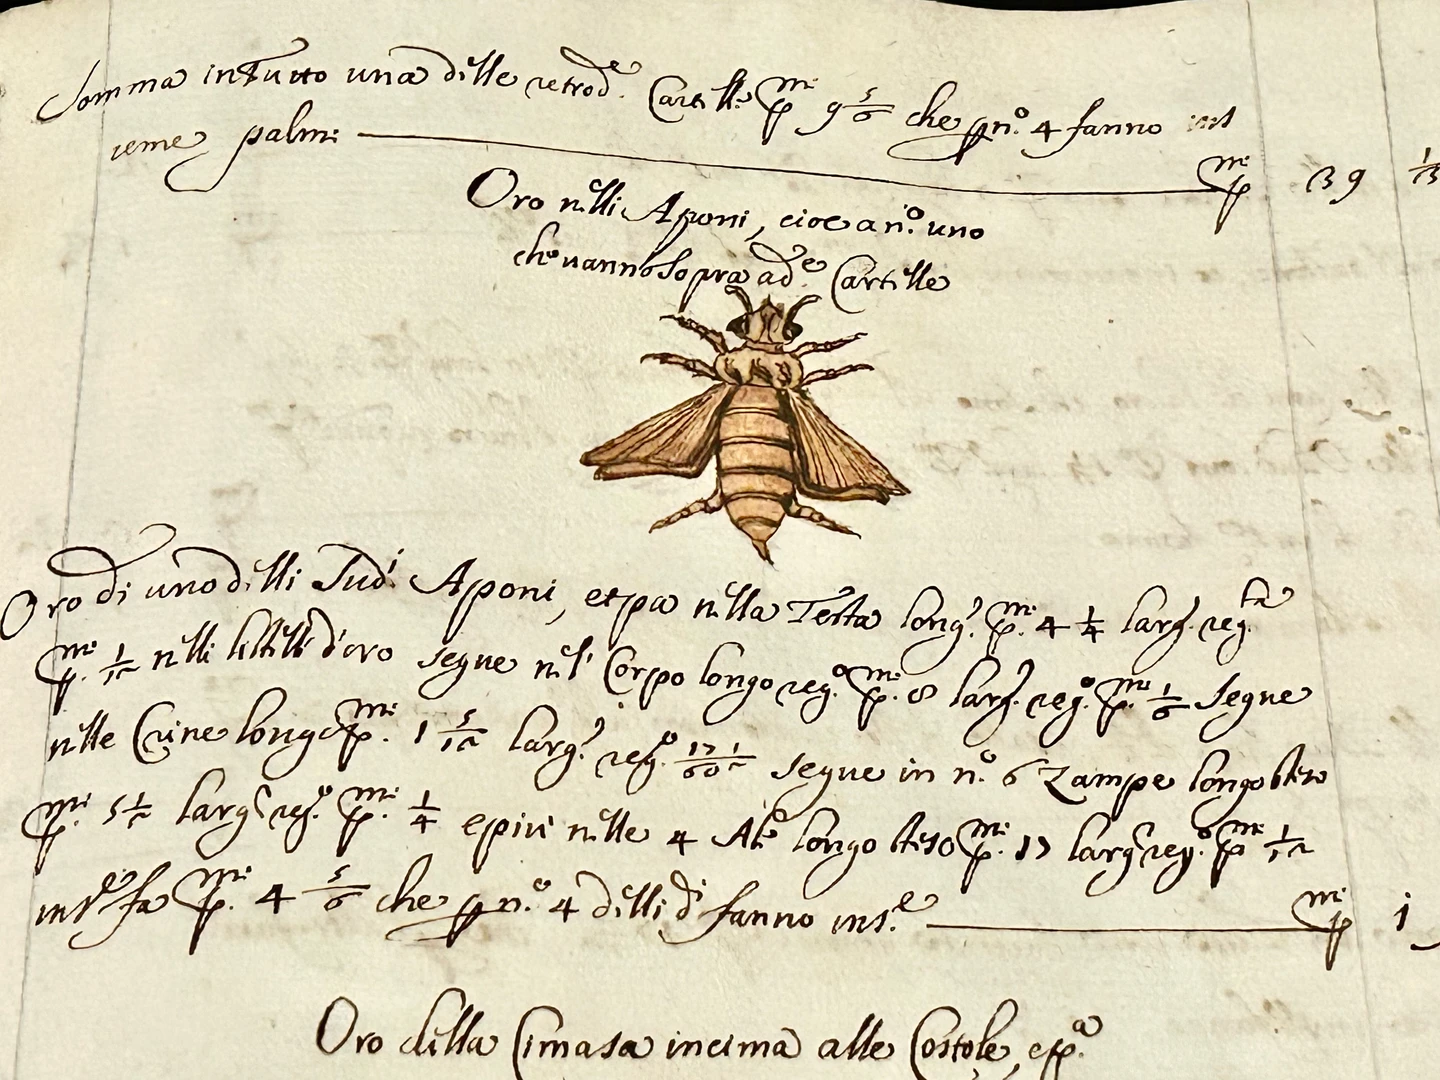 Somma in Tutto una delle retrode. Cartelle pmi 9 5/6 che p no. 4 fanno ins
ieme palmi pmi 39 1/3
Oro nelli Aponi, cioe a no. uno
che vanno sopra a de. Cartelle
Oro di uno delli Sudi. Aponi, et pa nella Testa long. pmi. 4 1/4 larg. rega.
pmi. 1/12 nelli listelli d'oro segue nel' Corpo longo rego. pmi. 8 larg. rego. pmi. 1/6 segue
nelle longo pmi. 1 5/12 larg. rego. segue in no. 6 Zampe longo steso
pmi. 5 1/2 larg. rego. pmi. 1/4 e piu nelle 4 Ale longo steso pmi. 17 larg. rego. pmi 1/12
inse. fa pmi. 4 5/6 che p no. 4 delli di. fanno inse. pmi
Oro della Cimasa incima alle Costole, e pa.